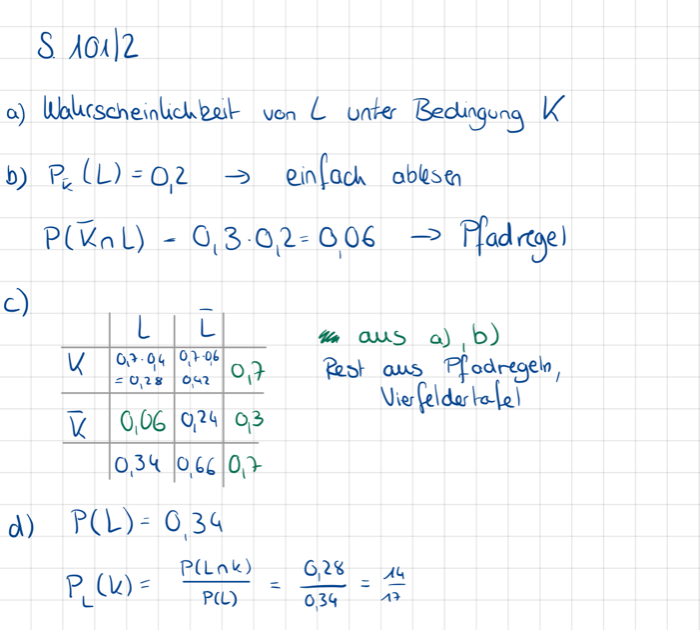 S. 101/2
a) Wahrscheinlichkeit von L unter Bedingung K
b) P_K̄ (L) = 0,2 → einfach ablesen
P(K̄∩L) = 0,3·0,2 = 0,06 → Pfadregel
c)
L L̄
K 0,7·0,4 = 0,28 0,7·0,6 0,42 0,7
K̄ 0,06 0,24 0,3
0,34 0,66 0,7
aus a), b)
Rest aus Pfadregeln,
Vierfeldertafel
d) P(L) = 0,34
P_L(K) = P(L∩K) / P(L) = 0,28 / 0,34 = 14/17